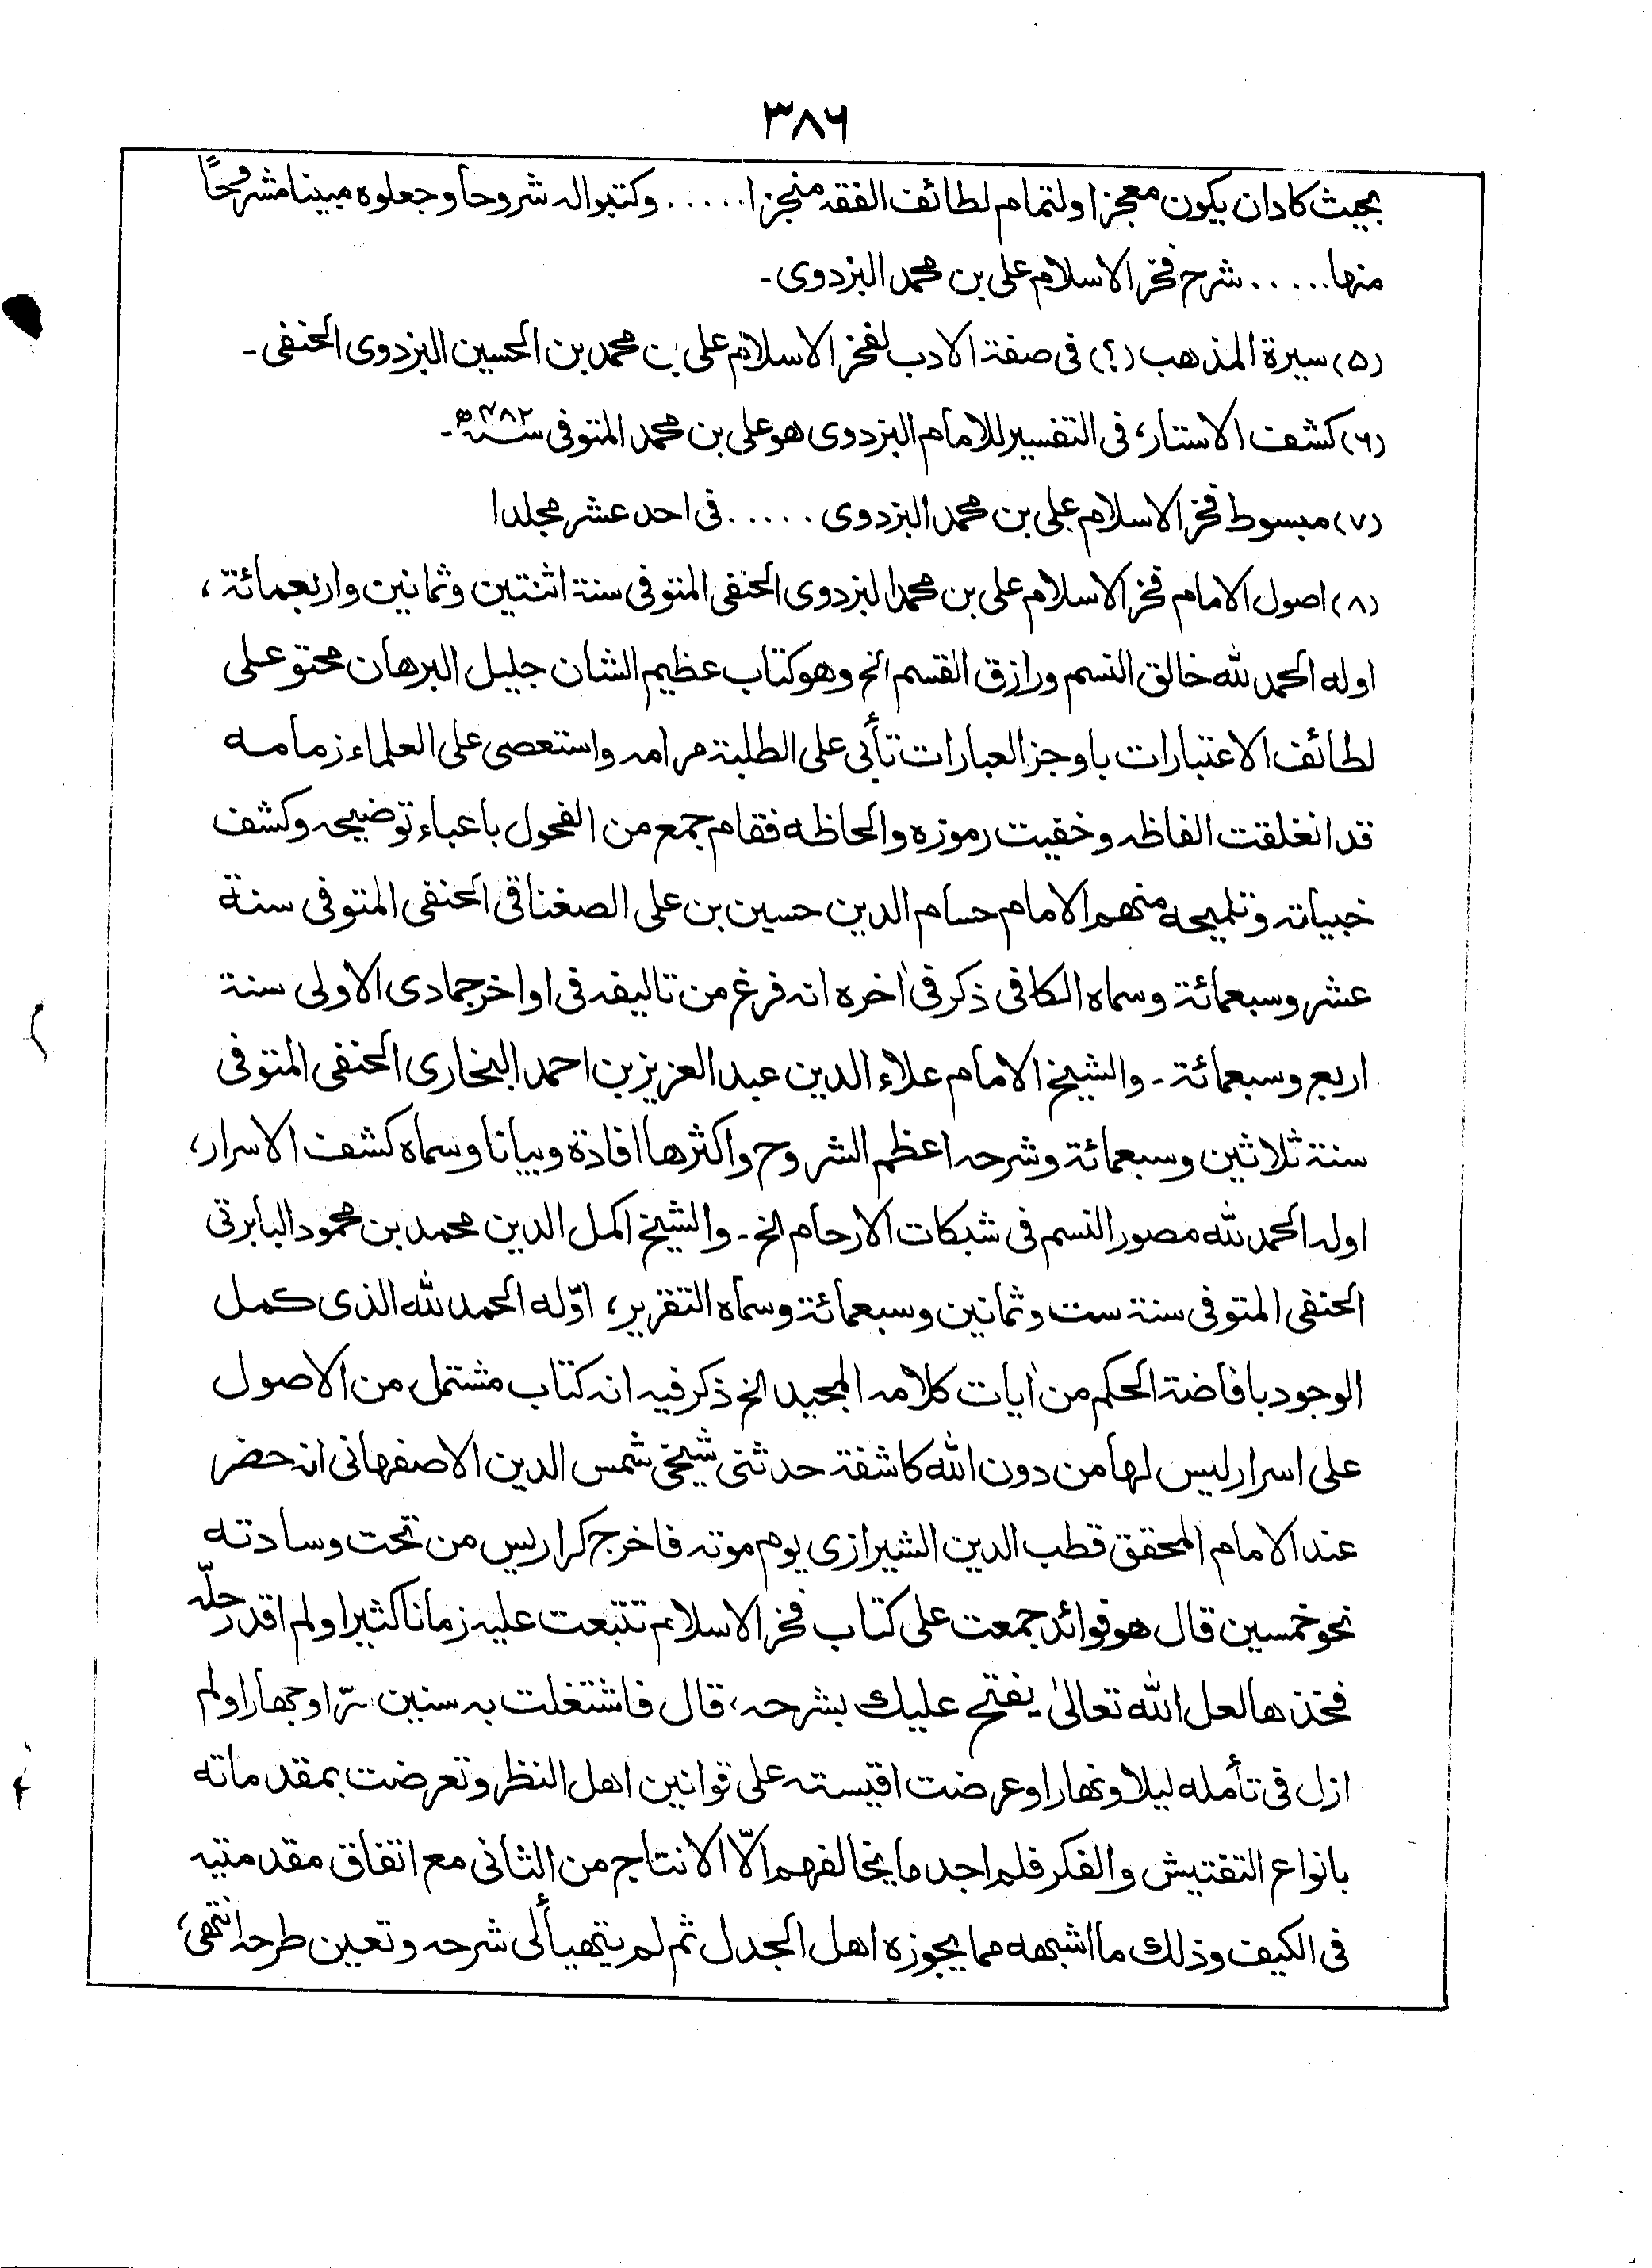 ۳۸۶
بحيث كادان يكون معجزا ولتمام لطائف الفقه منجزا ..... وكتبواله شروحا وجعلوه مبينا مشروحًا
منها ..... شرح فخر الاسلام على بن محمد البزدوى -
(۵) سيرة المذهب (؟) فى صفة الادب لفخر الاسلام على بن محمد بن الحسين البزدوى الحنفى -
(۶) كشف الاستار، فى التفسير للامام البزدوى هو على بن محمد المتوفى سنة ۴۸۲ھ -
(۷) مبسوط فخر الاسلام على بن محمد البزدوى ..... فى احد عشر مجلدا
(۸) اصول الامام فخر الاسلام على بن محمد البزدوى الحنفى المتوفى سنة اثنتين وثمانين واربعمائة،
اوله الحمد لله خالق النسم ورازق القسم الخ وهو كتاب عظيم الشان جليل البرهان محتو على
لطائف الاعتبارات باوجز العبارات تأبى على الطلبة مرامه واستعصى على العلماء زمامه
قد انغلقت الفاظه وخفيت رموزه والحاظه فقام جمع من الفحول باعباء توضيحه وكشف
خبياته وتلميحه منهم الامام حسام الدين حسين بن على الصغناقى الحنفى المتوفى سنة
عشر وسبعمائة وسماه الكافى ذكر فى اٰخره انه فرغ من تاليفه فى اواخر جمادى الاولى سنة
اربع وسبعمائة - والشيخ الامام علاء الدين عبد العزيز بن احمد البخارى الحنفى المتوفى
سنة ثلاثين وسبعمائة وشرحه اعظم الشروح واكثرها افادة وبيانا وسماه كشف الاسرار،
اوله الحمد لله مصور النسم فى شبكات الارحام الخ - والشيخ اكمل الدين محمد بن محمود البابرتى
الحنفى المتوفى سنة ست وثمانين وسبعمائة وسماه التقرير، اوّله الحمد لله الذى كمل
الوجود بافاضة الحكم من اٰيات كلامه المجيد الخ ذكر فيه انه كتاب مشتمل من الاصول
على اسرار ليس لها من دون الله كاشفة حدثنى شيخى شمس الدين الاصفهانى انه حضر
عند الامام المحقق قطب الدين الشيرازى يوم موته فاخرج كراريس من تحت وسادته
نحو خمسين قال هو فوائد جمعت على كتاب فخر الاسلام تتبعت عليه زمانا كثيرا ولم اقدر حلّه
فخذها لعل الله تعالىٰ يفتح عليك بشرحه، قال فاشتغلت به سنين سرّا وجهارا ولم
ازل فى تأمله ليلا ونهارا وعرضت اقيسته على قوانين اهل النظر وتعرضت بمقدماته
بانواع التفتيش والفكر فلم اجد ما يخالفهم الّا الانتاج من الثانى مع اتفاق مقدمتيه
فى الكيف وذلك ما اشبهه مما يجوزه اهل الجدل ثم لم يتهيأ لى شرحه وتعين طرحه انتهى،